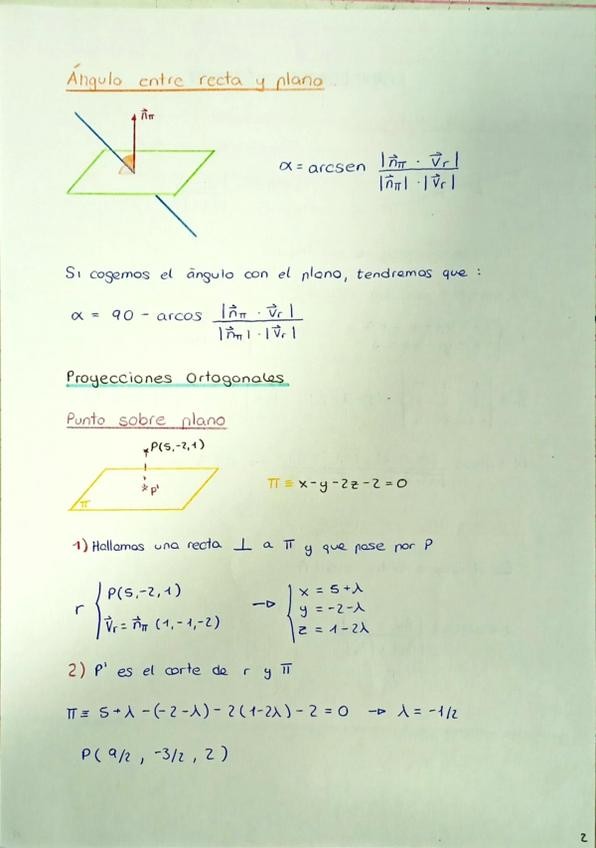 Ángulo entre recta y plano
n⃗π
α = arcsen |n⃗π · v⃗r| / |n⃗π| · |v⃗r|
Si cogemos el ángulo con el plano, tendremos que :
α = 90 - arcos |n⃗π · v⃗r| / |n⃗π| · |v⃗r|
Proyecciones Ortogonales
Punto sobre plano
P(5,-2,1)
P'
π
π ≡ x-y-2z-2=0
1) Hallamos una recta ⊥ a π y que pase por P
r { P(5,-2,1)
v⃗r = n⃗π (1,-1,-2)
→ { x = 5+λ
y = -2-λ
z = 1-2λ
2) P' es el corte de r y π
π ≡ 5+λ -(-2-λ) -2(1-2λ) -2 = 0 → λ = -1/2
P( 9/2 , -3/2 , 2 )
2